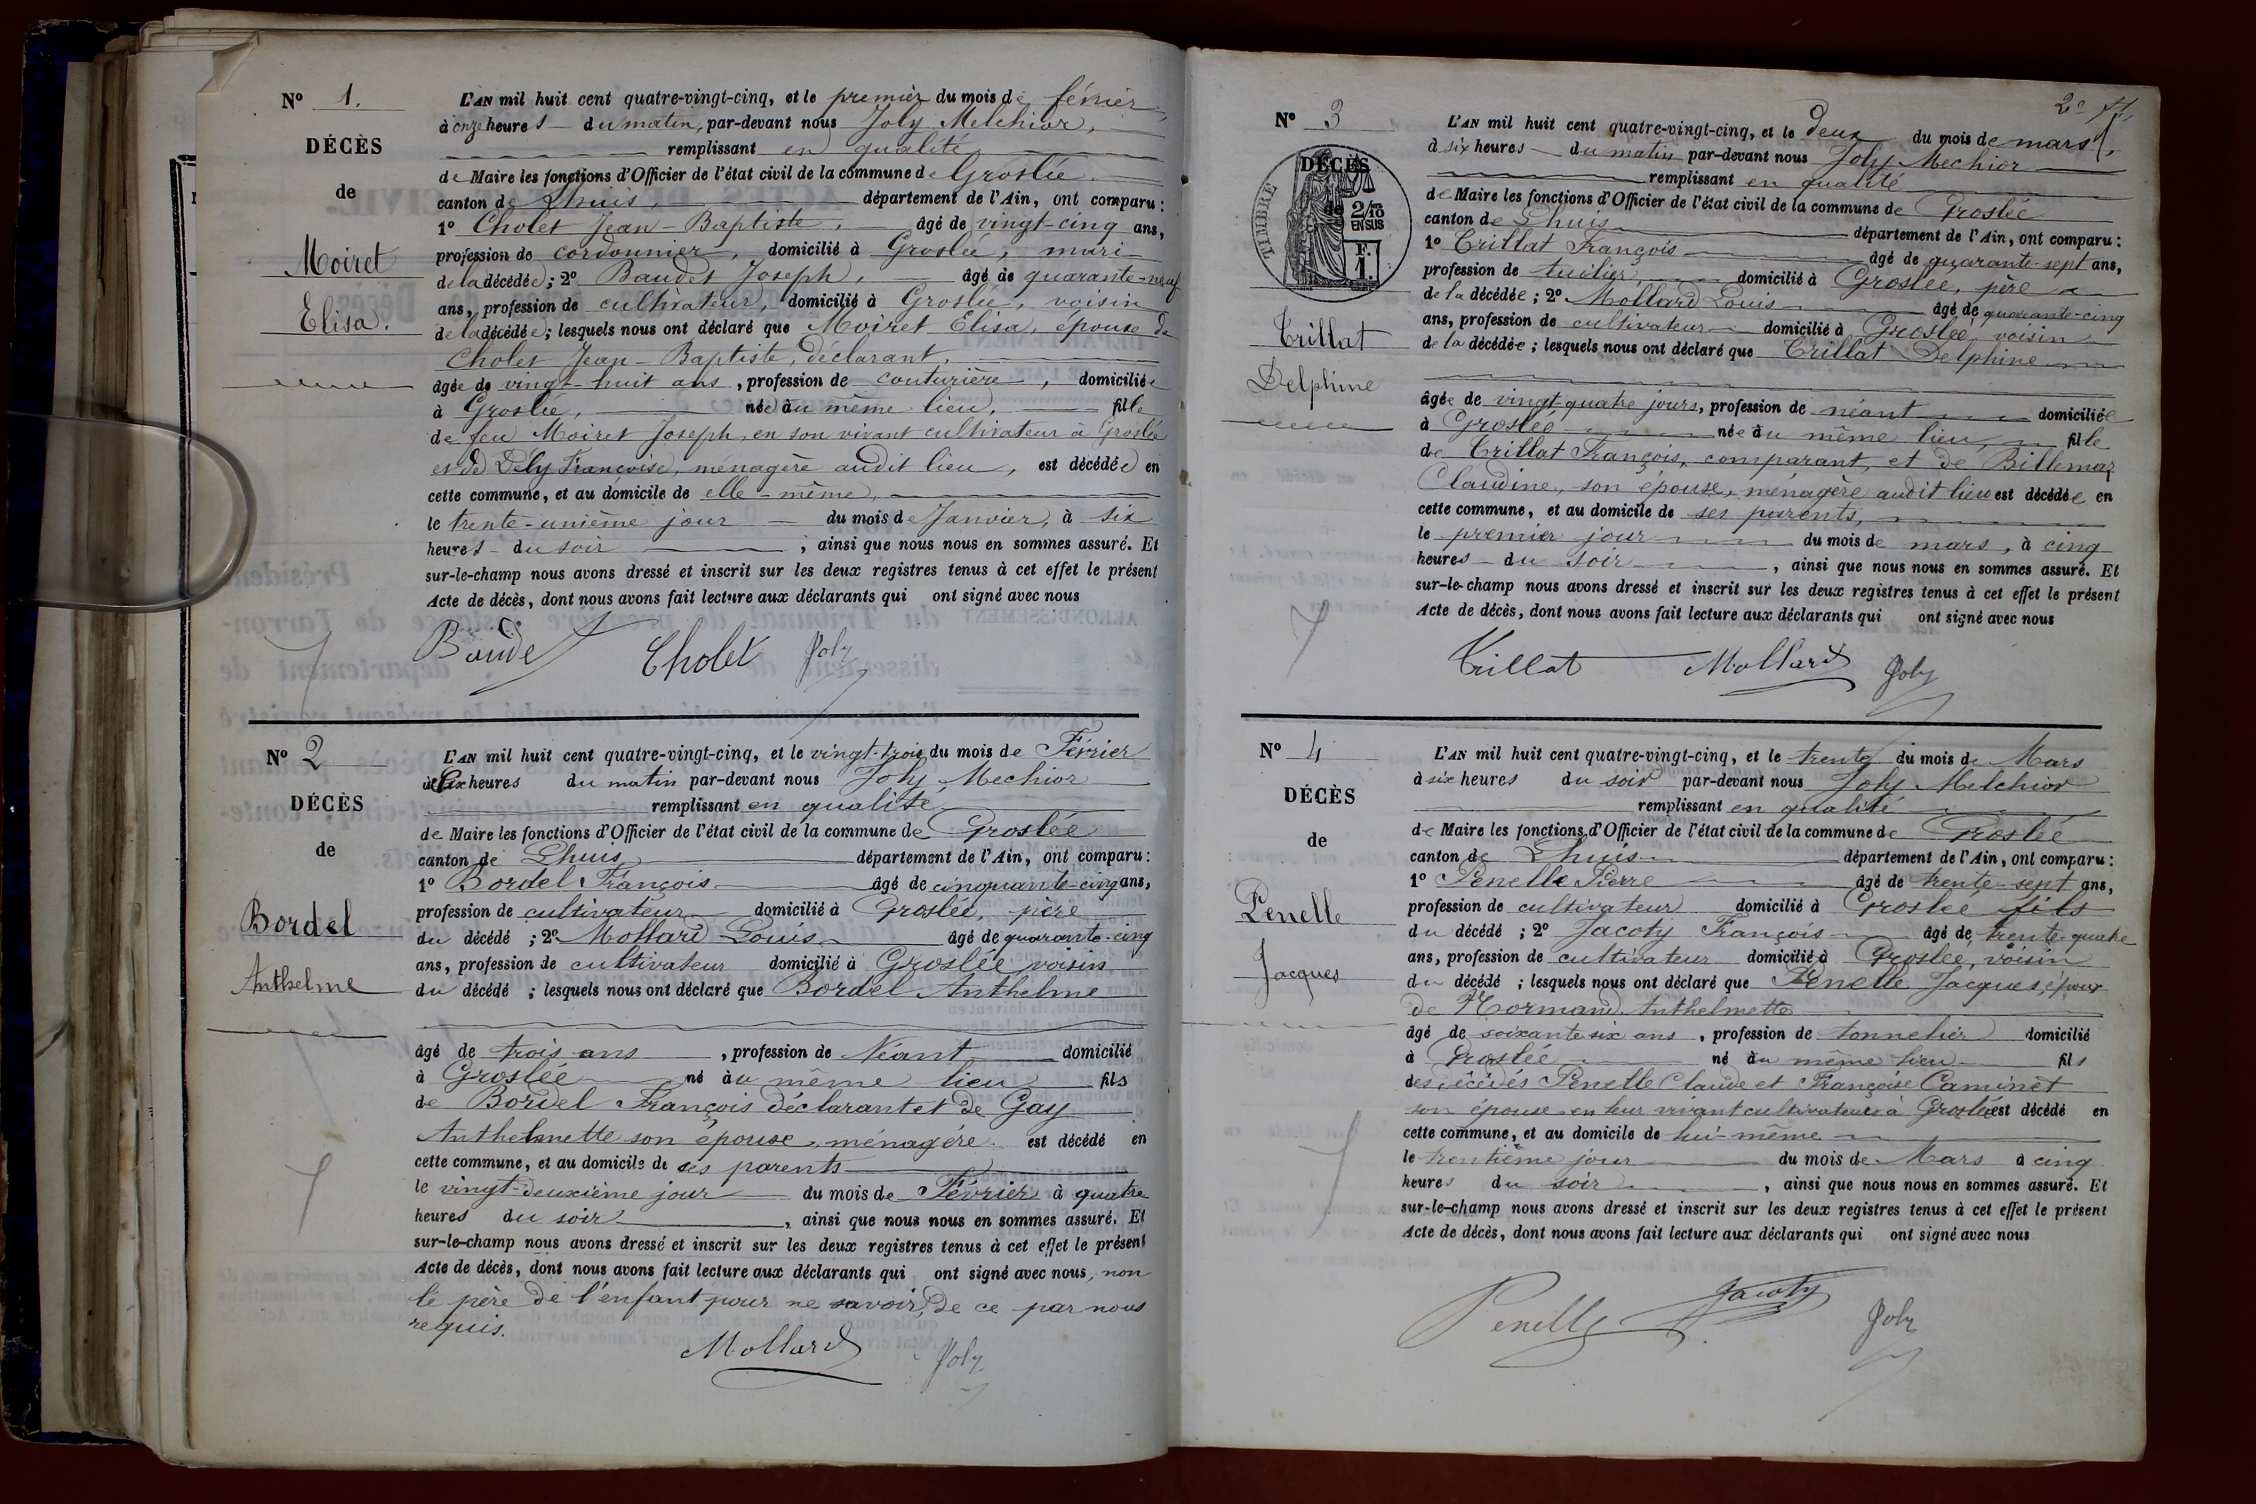 N° 1.
DÉCÈS
de
Moiret
Elisa.
L'AN mil huit cent quatre-vingt-cinq, et le premier du mois de février
à onze heures du matin, par-devant nous Joly Melchior,
remplissant en qualité
de Maire les fonctions d'Officier de l'état civil de la commune de Groslée
canton de Lhuis, département de l'Ain, ont comparu :
1° Cholet Jean-Baptiste, âgé de vingt-cinq ans,
profession de cordonnier, domicilié à Groslée, mari
de la décédée ; 2° Baudet Joseph, âgé de quarante-neuf
ans, profession de cultivateur, domicilié à Groslée, voisin
de la décédée ; lesquels nous ont déclaré que Moiret Elisa, épouse de
Cholet Jean-Baptiste, déclarant,
âgée de vingt-huit ans, profession de couturière, domiciliée
à Groslée, née au même lieu, fille
de feu Moiret Joseph, en son vivant cultivateur à Groslée
et de Dely Françoise, ménagère audit lieu, est décédée en
cette commune, et au domicile de elle-même,
le trente-unième jour du mois de Janvier, à six
heures du soir, ainsi que nous nous en sommes assuré. Et
sur-le-champ nous avons dressé et inscrit sur les deux registres tenus à cet effet le présent
Acte de décès, dont nous avons fait lecture aux déclarants qui ont signé avec nous
Baudet Cholet Joly
N° 2
DÉCÈS
de
Bordel
Anthelme
L'AN mil huit cent quatre-vingt-cinq, et le vingt-trois du mois de Février
à six heures du matin par-devant nous Joly Mechior
remplissant en qualité
de Maire les fonctions d'Officier de l'état civil de la commune de Groslée
canton de Lhuis département de l'Ain, ont comparu :
1° Bordel François âgé de cinquante-cinq ans,
profession de cultivateur domicilié à Groslée, père
du décédé ; 2° Mollard Louis âgé de quarante-cinq
ans, profession de cultivateur domicilié à Groslée voisin
du décédé ; lesquels nous ont déclaré que Bordel Anthelme
âgé de trois ans, profession de Néant domicilié
à Groslée né au même lieu fils
de Bordel François déclarant et de Gay
Anthelmette son épouse, ménagère est décédé en
cette commune, et au domicile de ses parents
le vingt-deuxième jour du mois de Février à quatre
heures du soir, ainsi que nous nous en sommes assuré. Et
sur-le-champ nous avons dressé et inscrit sur les deux registres tenus à cet effet le présent
Acte de décès, dont nous avons fait lecture aux déclarants qui ont signé avec nous, non
le père de l'enfant pour ne savoir, de ce par nous
requis.
Mollard Joly
N° 3
TIMBRE
DÉCÈS
de
2/10
EN SUS
F.
1.
Trillat
Delphine
L'AN mil huit cent quatre-vingt-cinq, et le deux du mois de mars,
à six heures du matin par-devant nous Joly Mechior
remplissant en qualité
de Maire les fonctions d'Officier de l'état civil de la commune de Groslée
canton de Lhuis département de l'Ain, ont comparu :
1° Trillat François âgé de quarante-sept ans,
profession de tuilier, domicilié à Groslée, père
de la décédée ; 2° Mollard Louis âgé de quarante-cinq
ans, profession de cultivateur domicilié à Groslée voisin
de la décédée ; lesquels nous ont déclaré que Trillat Delphine
âgée de vingt quatre jours, profession de néant domiciliée
à Groslée née au même lieu, fille
de Trillat François, comparant, et de Billemaz
Claudine, son épouse, ménagère audit lieu est décédée en
cette commune, et au domicile de ses parents,
le premier jour du mois de mars, à cinq
heures du soir, ainsi que nous nous en sommes assuré. Et
sur-le-champ nous avons dressé et inscrit sur les deux registres tenus à cet effet le présent
Acte de décès, dont nous avons fait lecture aux déclarants qui ont signé avec nous
Trillat Mollard Joly
N° 4
DÉCÈS
de
Penelle
Jacques
L'AN mil huit cent quatre-vingt-cinq, et le trente du mois de Mars
à six heures du soir par-devant nous Joly Melchior
remplissant en qualité
de Maire les fonctions d'Officier de l'état civil de la commune de Groslée
canton de Lhuis département de l'Ain, ont comparu :
1° Penelle Pierre âgé de trente-sept ans,
profession de cultivateur domicilié à Groslée fils
du décédé ; 2° Jacoty François âgé de trente-quatre
ans, profession de cultivateur domicilié à Groslée, voisin
du décédé ; lesquels nous ont déclaré que Penelle Jacques, époux
de Normand Anthelmette
âgé de soixante six ans, profession de tonnelier domicilié
à Groslée né au même lieu fils
des décédés Penelle Claude et Françoise Caminet
son épouse en leur vivant cultivateurs à Groslée est décédé en
cette commune, et au domicile de lui-même
le trentième jour du mois de Mars à cinq
heures du soir, ainsi que nous nous en sommes assuré. Et
sur-le-champ nous avons dressé et inscrit sur les deux registres tenus à cet effet le présent
Acte de décès, dont nous avons fait lecture aux déclarants qui ont signé avec nous
Penelle Jacoty Joly